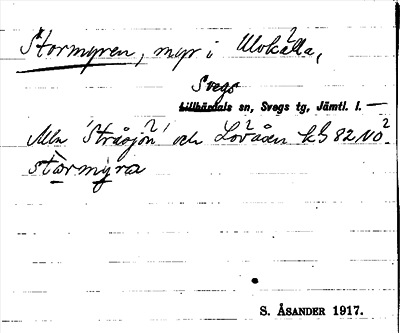 Stormyren, myr i Mokälla,
Svegs
Lillhärdals sn, Svegs tg, Jämtl. l. —
Mln 'Stråsjön' och Lövåsen kS 82 NO.
stārmyra
S. ÅSANDER 1917.